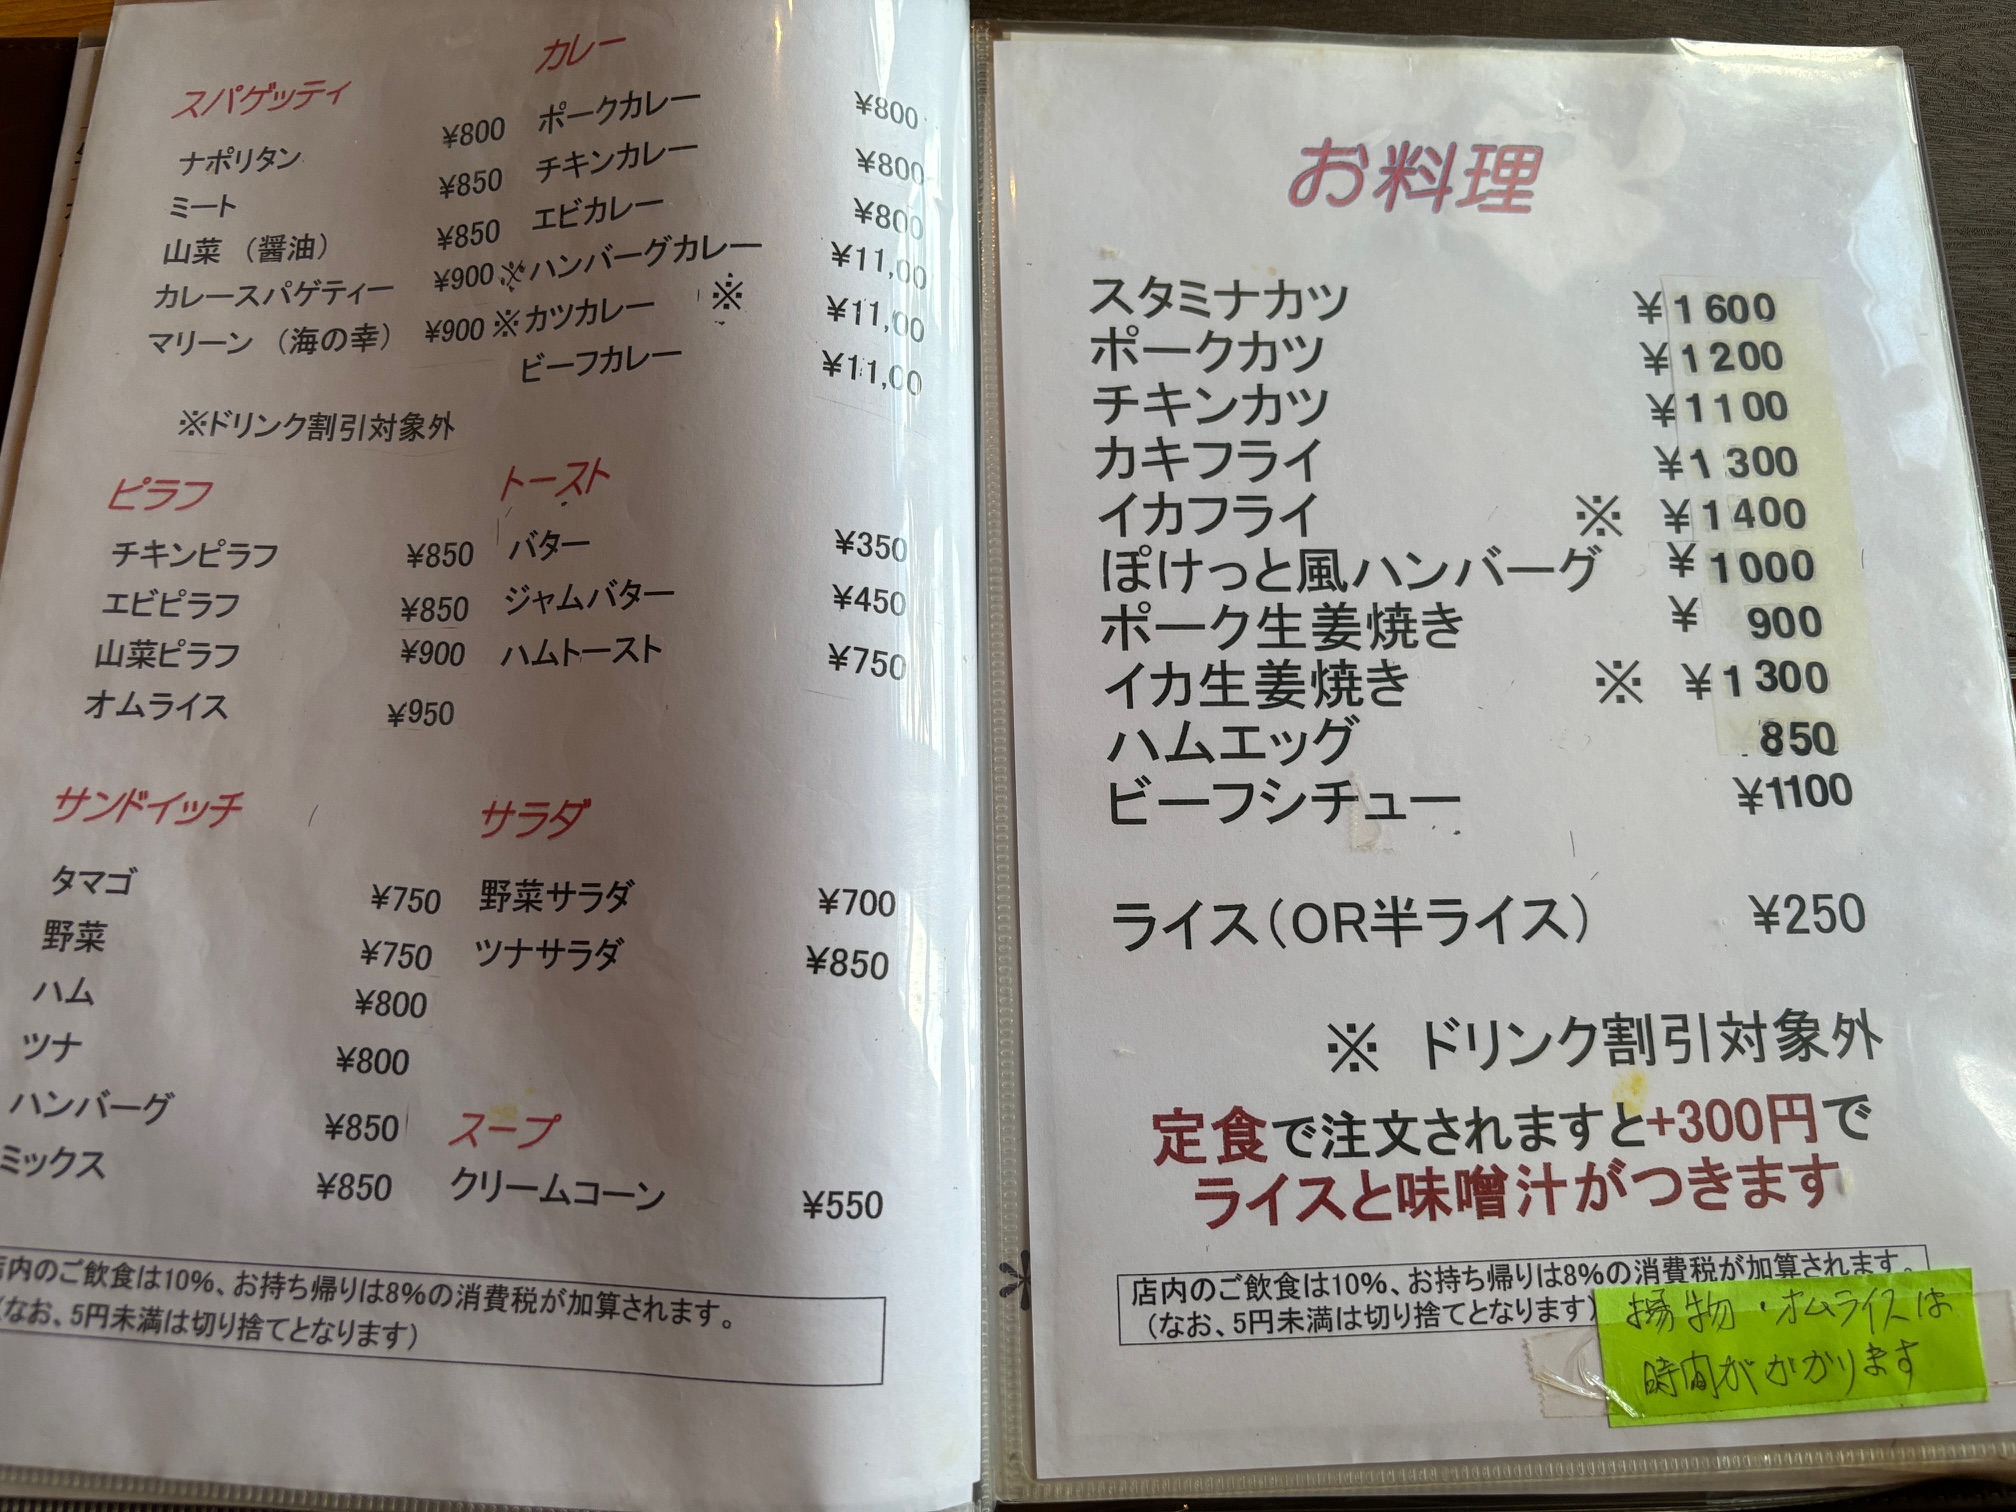 スパゲッティ
ナポリタン ¥800
ミート ¥850
山菜（醤油） ¥850
カレースパゲティー ¥900 ※
マリーン（海の幸） ¥900 ※
※ドリンク割引対象外
カレー
ポークカレー ¥800
チキンカレー ¥800
エビカレー ¥800
ハンバーグカレー ¥11,00
カツカレー ※ ¥11,00
ビーフカレー ¥11,00
ピラフ
チキンピラフ ¥850
エビピラフ ¥850
山菜ピラフ ¥900
オムライス ¥950
トースト
バター ¥350
ジャムバター ¥450
ハムトースト ¥750
サンドイッチ
タマゴ ¥750
野菜 ¥750
ハム ¥800
ツナ ¥800
ハンバーグ ¥850
ミックス ¥850
サラダ
野菜サラダ ¥700
ツナサラダ ¥850
スープ
クリームコーン ¥550
店内のご飲食は10%、お持ち帰りは8%の消費税が加算されます。
（なお、5円未満は切り捨てとなります）
お料理
スタミナカツ ¥1600
ポークカツ ¥1200
チキンカツ ¥1100
カキフライ ¥1300
イカフライ ※ ¥1400
ぽけっと風ハンバーグ ¥1000
ポーク生姜焼き ¥ 900
イカ生姜焼き ※ ¥1300
ハムエッグ 850
ビーフシチュー ¥1100
ライス（OR半ライス） ¥250
※ ドリンク割引対象外
定食で注文されますと+300円で
ライスと味噌汁がつきます
店内のご飲食は10%、お持ち帰りは8%の消費税が加算されます。
（なお、5円未満は切り捨てとなります）
揚物・オムライスは
時間がかかります